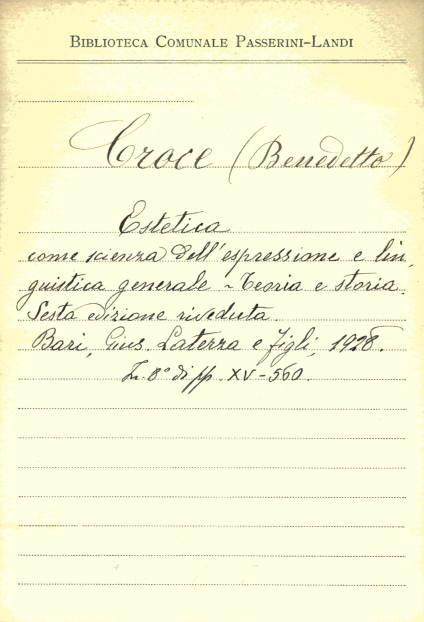 BIBLIOTECA COMUNALE PASSERINI-LANDI
Croce (Benedetto)
Estetica
come scienza dell'espressione e lin,
guistica generale - Teoria e storia.
Sesta edizione riveduta.
Bari, Gius. Laterza e figli, 1928.
In 8° di pp. XV-560.